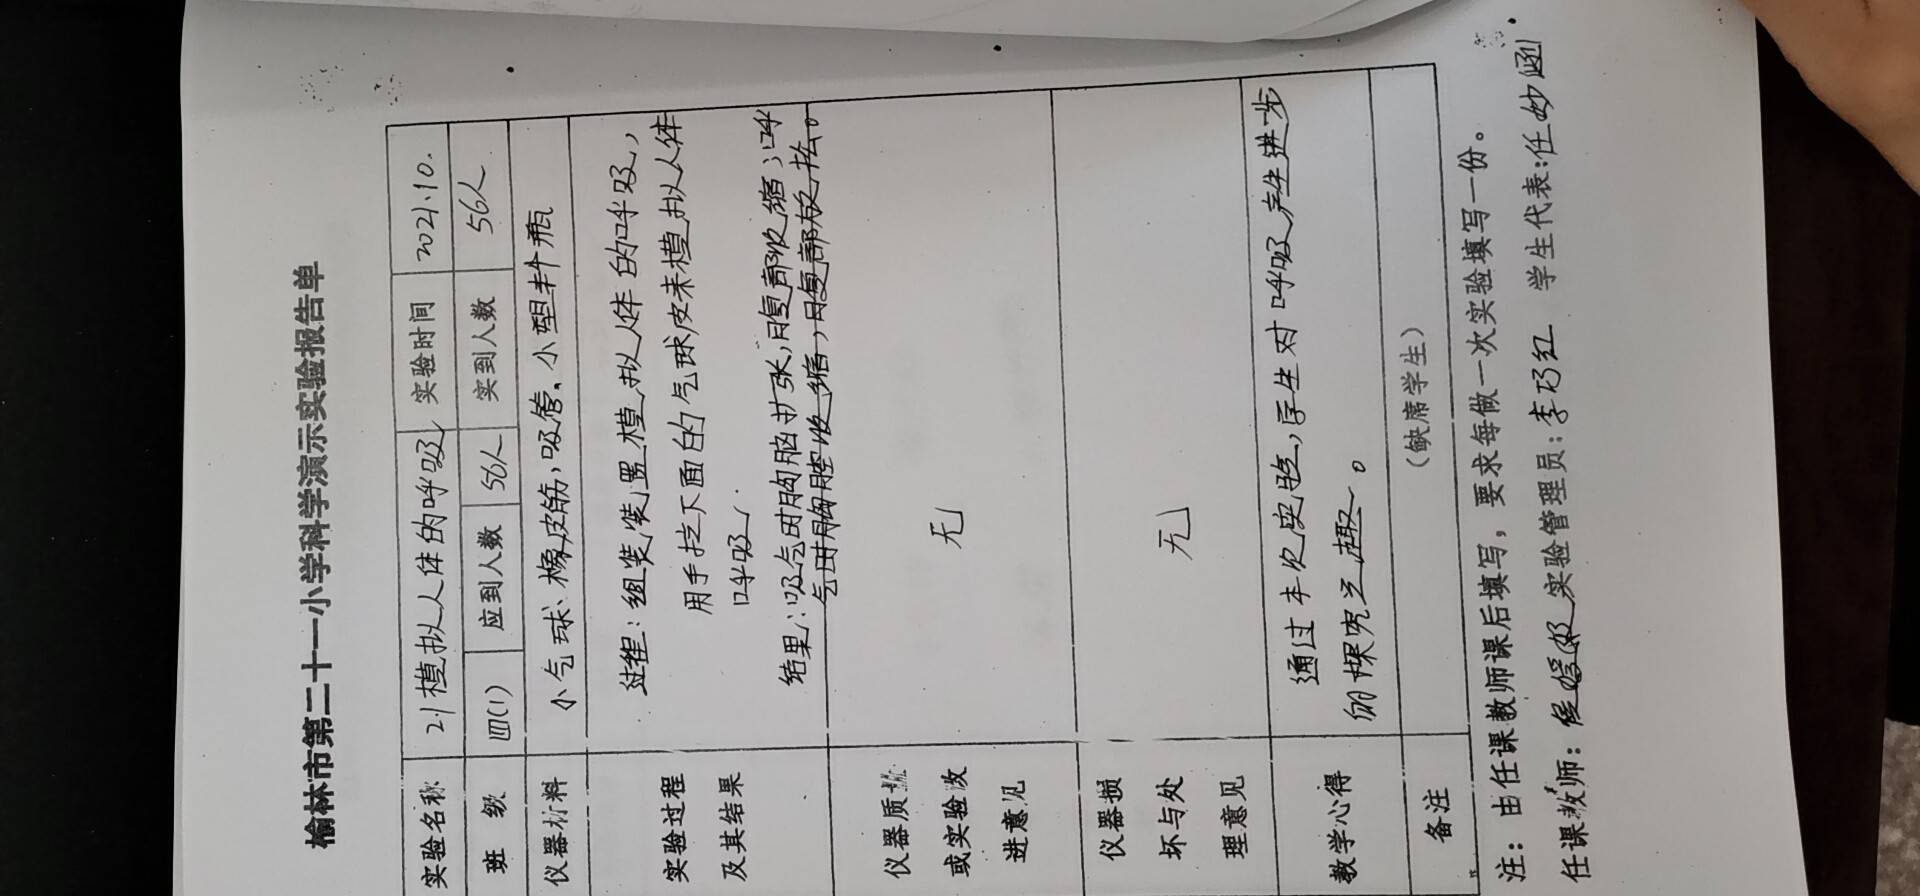 榆林市第二十一小学科学演示实验报告单
实验名称 2.1模拟人体的呼吸 实验时间 2021.10.
班 级 四(1) 应到人数 56人 实到人数 56人
仪器材料 小气球、橡皮筋,吸管、小塑料瓶
实验过程及其结果
过程:组装装置模拟人体的呼吸,
用手拉下面的气球皮来模拟人体
呼吸.
结果:吸气时胸脑扩张,腹部收缩;呼
气时胸腔收缩,腹部放松。
仪器质量
或实验改
进意见
无
仪器损
坏与处
理意见
无
教学心得
通过本次实验,学生对呼吸产生进步
的探究兴趣。
备注 (缺席学生)
注:由任课教师课后填写,要求每做一次实验填写一份。
任课教师: 实验管理员:李巧红 学生代表:任妙涵